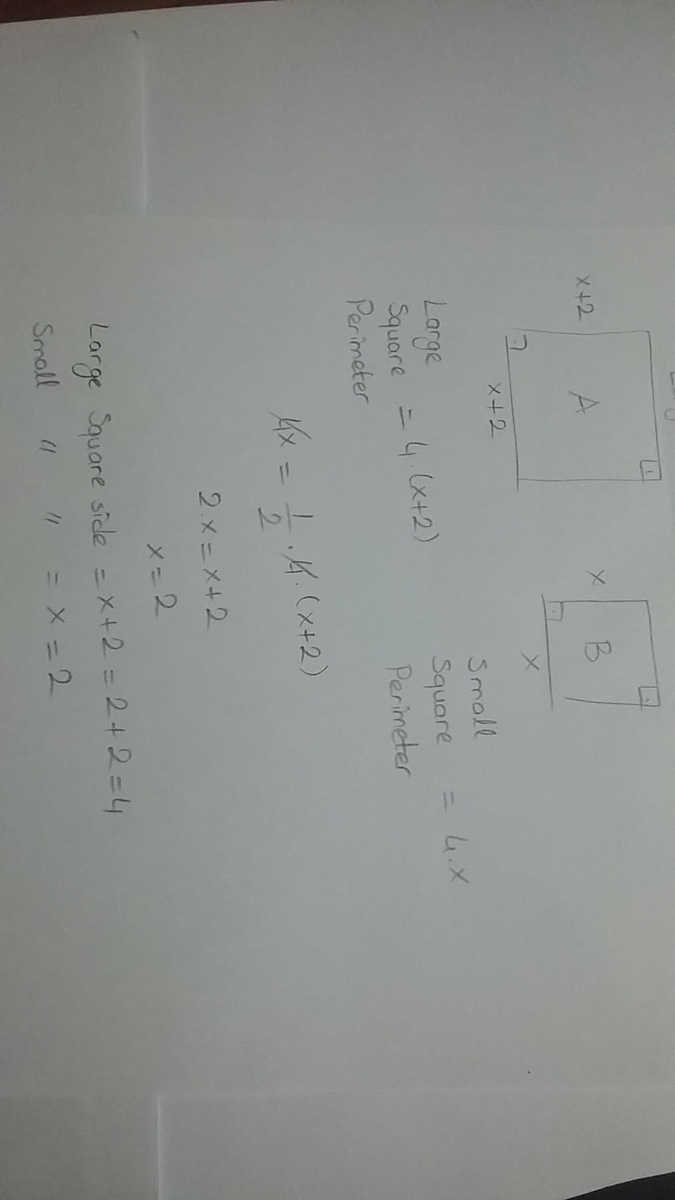 x+2
A
x+2
x
B
x
Large
Square = 4.(x+2)
Perimeter
Small
Square = 4.x
Perimeter
4x = 1/2 . 4 . (x+2)
2.x = x+2
x = 2
Large Square side = x+2 = 2+2 = 4
Small " " = x = 2